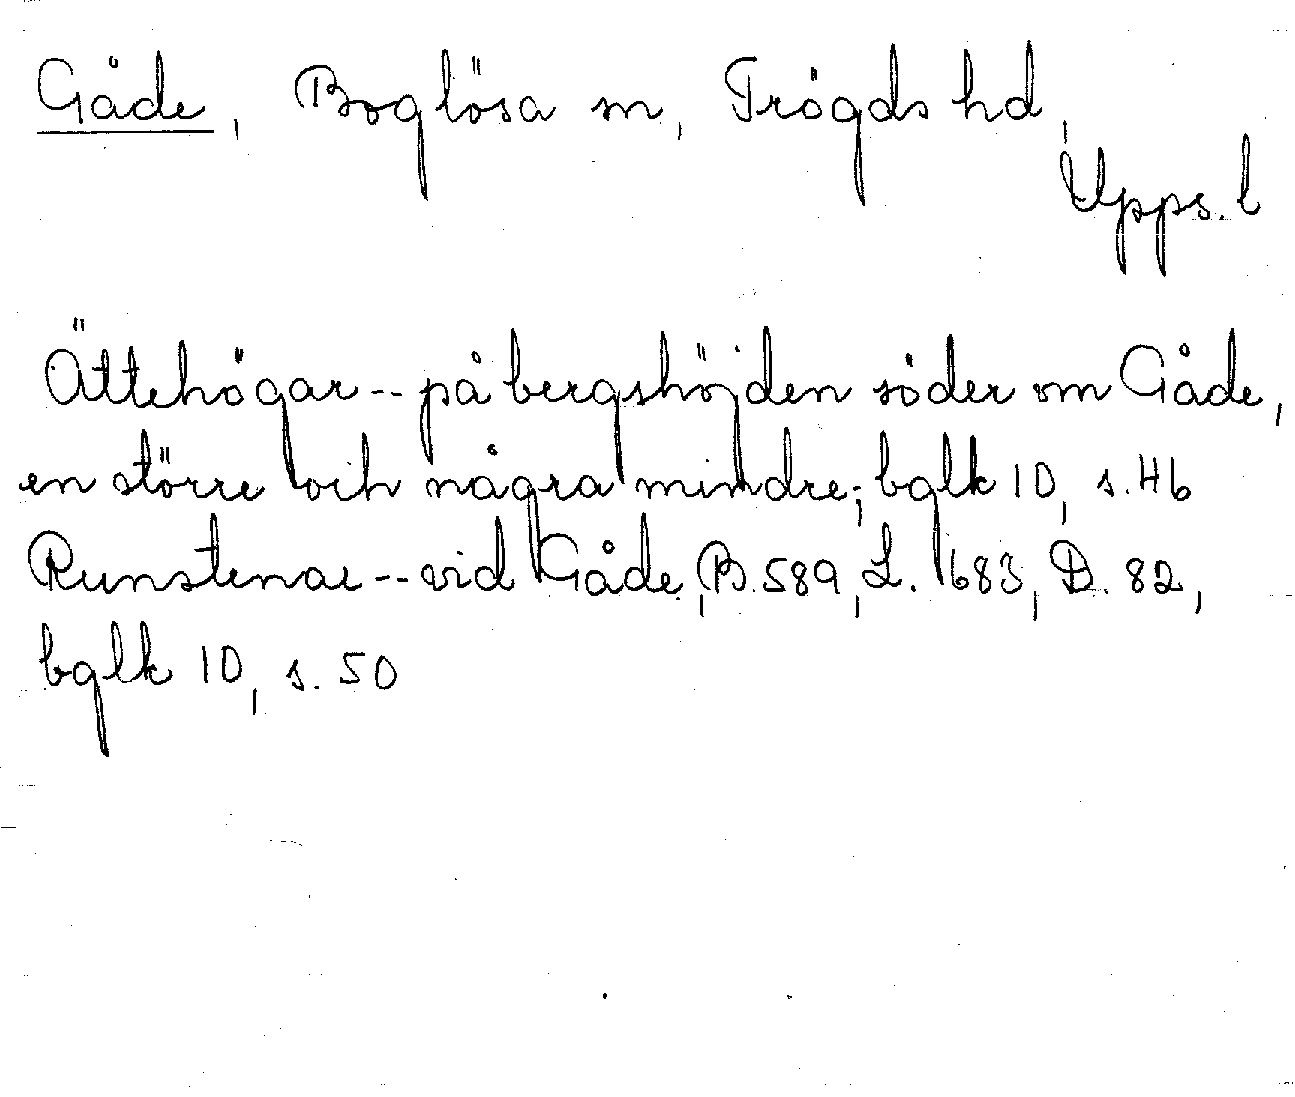 Gåde, Boglösa sn, Trögds hd,
Upps. l
Ättehögar -- på bergshöjden söder om Gåde,
en större och några mindre; bglk 10, s. 46
Runstenar -- vid Gåde, B. 589, L. 683, D. 82,
bglk 10, s. 50